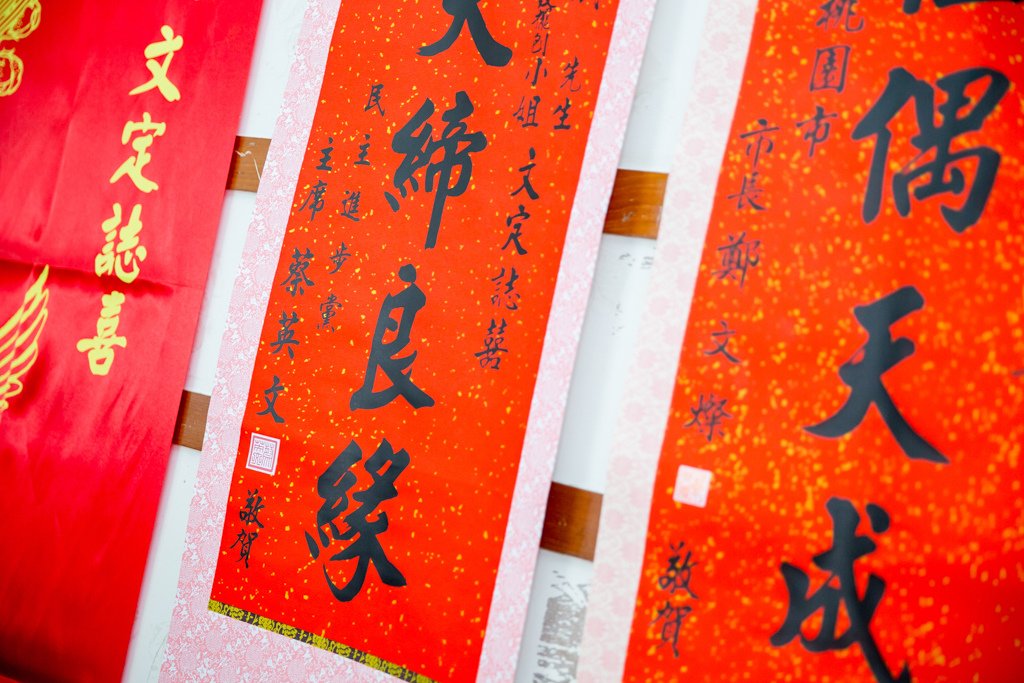 偶天成
桃園市
市長鄭文燦
敬賀
先生
小姐
文定誌囍
天締良緣
民主進步黨
主席蔡英文
敬賀
文定誌喜